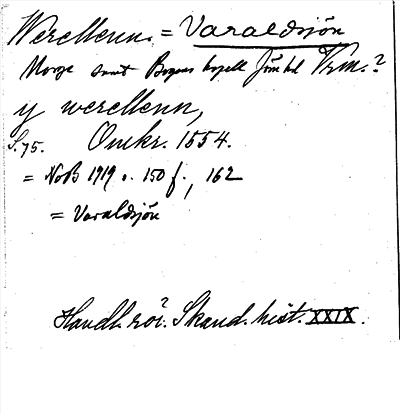 Werellenn. = Varaldsjön
Norge samt Bogens kapell Jön hd Vrm.?
y werellenn,
S. 75. Omkr. 1554.
= NoB 1919 s. 150 f., 162
= Varaldsjön
Handl. rör. Skand. hist. XXIX.